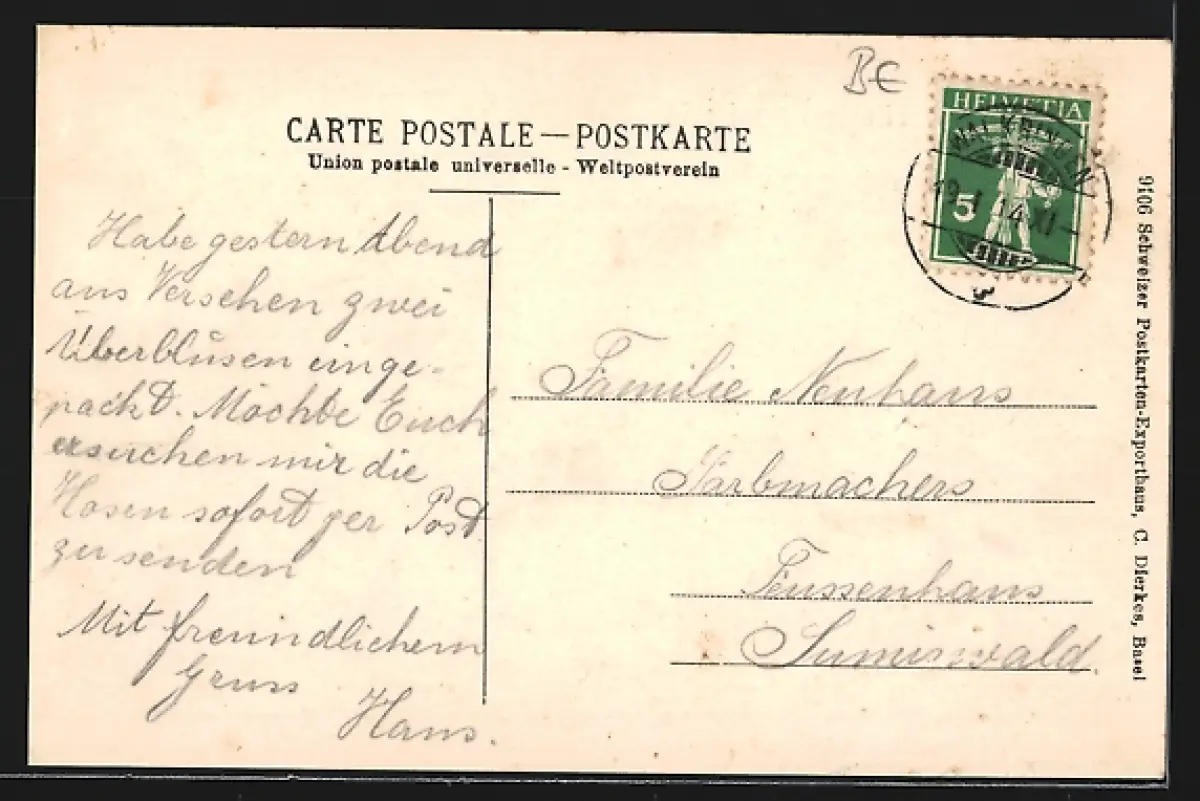 BE
HELVETIA
5
WALKRINGEN
19. I. 14. XI
CARTE POSTALE — POSTKARTE
Union postale universelle - Weltpostverein
Habe gestern Abend
aus Versehen zwei
Überblusen einge-
packt. Möchte Euch
ersuchen mir die
Hosen sofort per Post
zu senden
Mit freundlichem
Gruss
Hans.
Familie Neuhaus
Farbmachers
Sumiswald.
9106 Schweizer Postkarten-Exporthaus, C. Dierkes, Basel